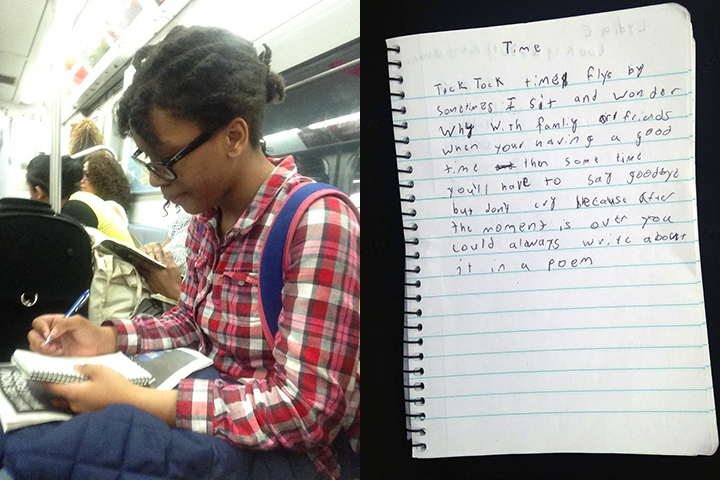 Time
Tick Tock time flys by
Sometimes I sit and wonder
Why with family or friends
when your having a good
time then some time
you'll have to say goodbye
but don't cry because after
the moment is over you
could always write about
it in a poem